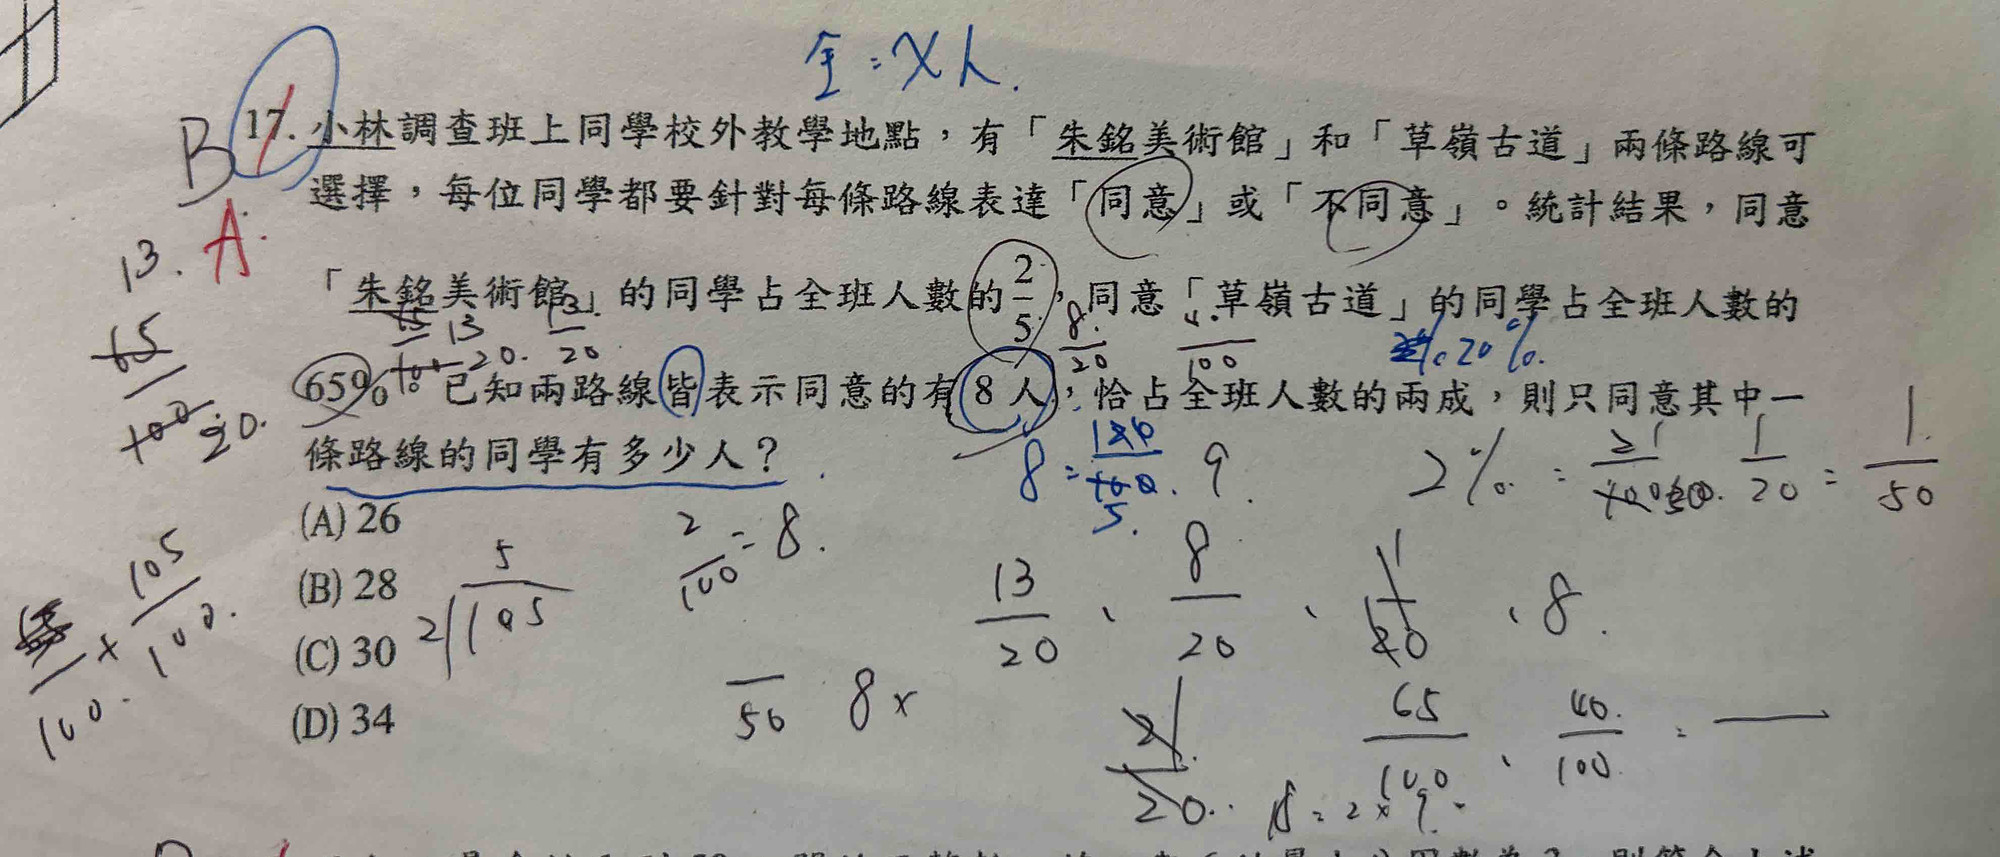 全:X人.
B 17. 小林調查班上同學校外教學地點，有「朱銘美術館」和「草嶺古道」兩條路線可
選擇，每位同學都要針對每條路線表達「同意」或「不同意」。統計結果，同意
A.
13.
「朱銘美術館」的同學占全班人數的2/5，同意「草嶺古道」的同學占全班人數的
13/20 8/20 20%.
65%。已知兩路線皆表示同意的有8人，恰占全班人數的兩成，則只同意其中一
65/100 20.
條路線的同學有多少人？
8 = 5. 9. 2% = 1/20 = 1/50
(A) 26
2/100 = 8.
(B) 28
105/100.
2 105 5
13/20、8/20、 、8.
(C) 30
(D) 34
50 8×
65/100、40/100 =
21/20.